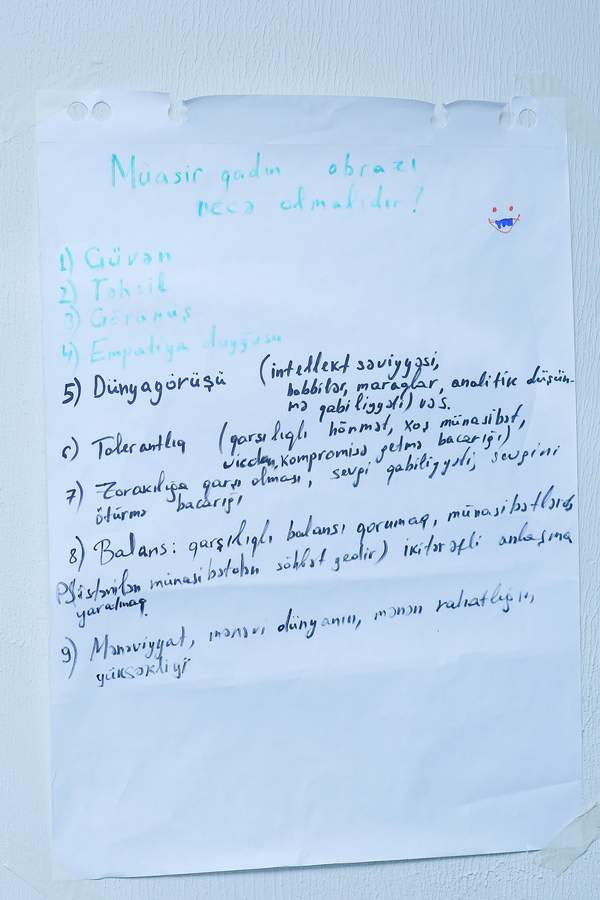 Müasir qadın obrazı
necə olmalıdır?
1) Güvən
2) Təhsil
3) Görünüş
4) Empatiya duyğusu
5) Dünyagörüşü (intellekt səviyyəsi,
hobbilər, maraqlar, analitik düşün-
mə qabiliyyəti) və s.
6) Tolerantlıq (qarşılıqlı hörmət, xoş münasibət,
vicdan, kompromisə getmə bacarığı)
7) Zorakılığa qarşı olması, sevgi qabiliyyəti, sevgini
ötürmə bacarığı
8) Balans: qarşılıqlı balansı qorumaq, münasibətlərdə
(istənilən münasibətdən söhbət gedir) ikitərəfli anlaşma
yaratmaq.
9) Mənəviyyat, mənəvi dünyanın, mənən rahatlığın,
yüksəkliyi